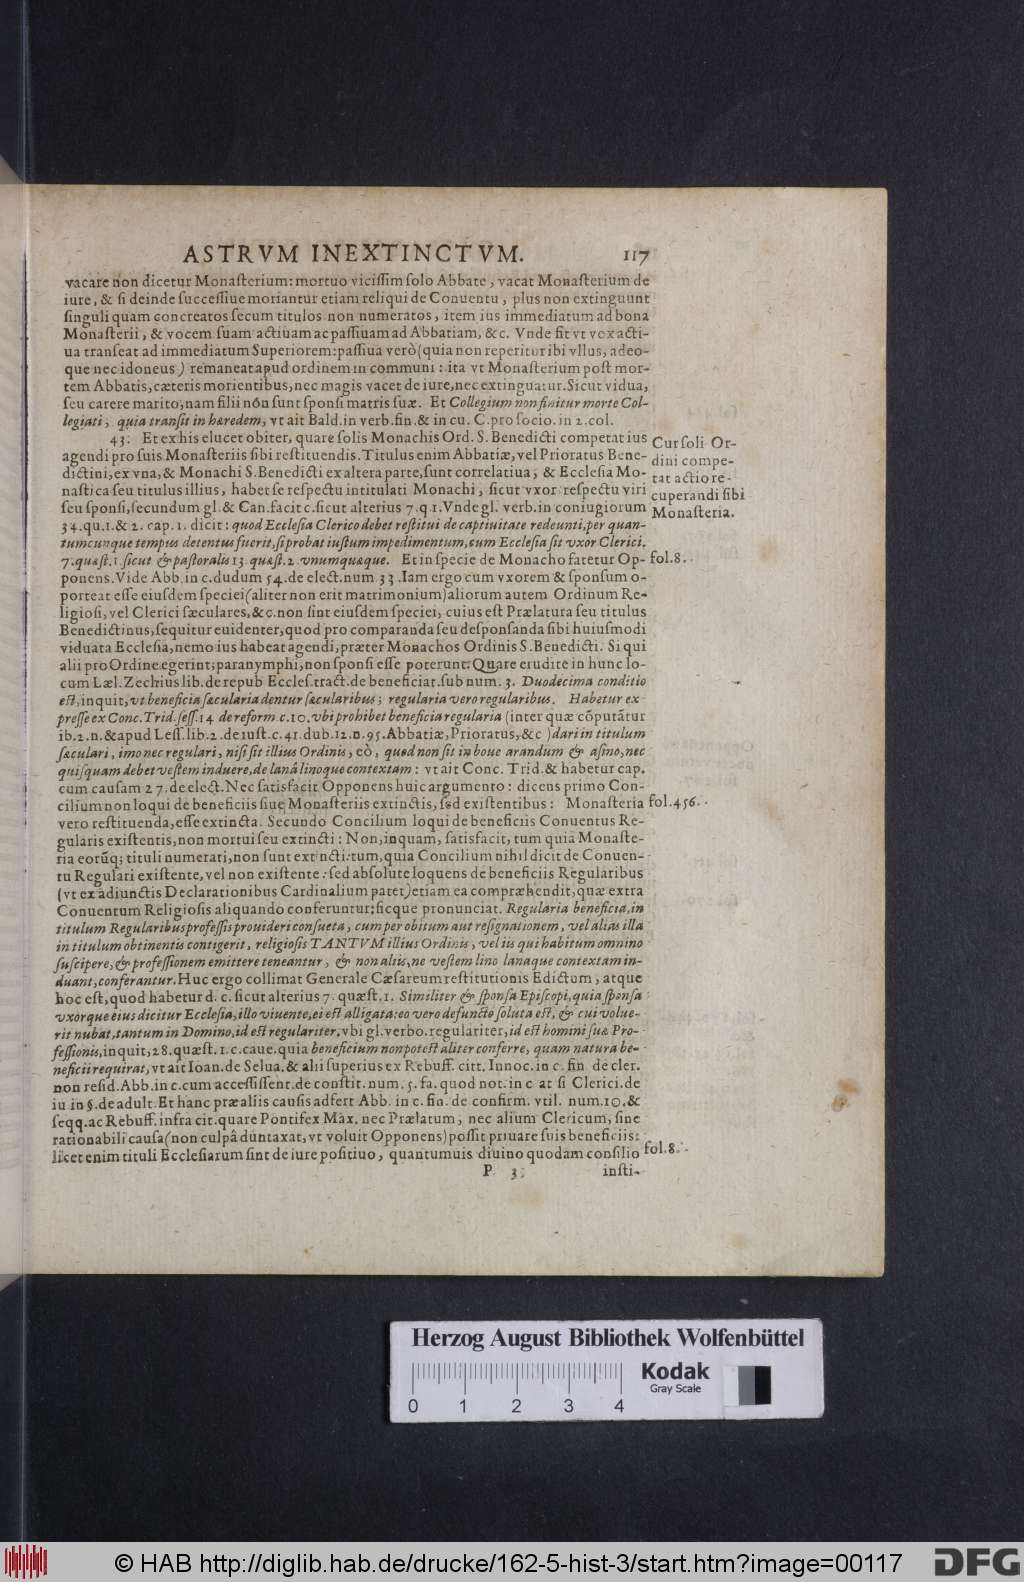 ASTRVM INEXTINCTVM. 117
vacare non dicetur Monaſterium: mortuo viciſſim ſolo Abbate, vacat Monaſterium de
iure, & ſi deinde ſucceſſiue moriantur etiam reliqui de Conuentu, plus non extinguunt
ſinguli quam concreatos ſecum titulos non numeratos, item ius immediatum ad bona
Monaſterii, & vocem ſuam actiuam ac paſſiuam ad Abbatiam, &c. Vnde fit vt vox acti-
ua tranſeat ad immediatum Superiorem: paſſiua verò (quia non reperitur ibi vllus, adeo-
que nec idoneus) remaneat apud ordinem in communi: ita vt Monaſterium poſt mor-
tem Abbatis, cæteris morientibus, nec magis vacet de iure, nec extinguatur. Sicut vidua,
ſeu carere marito; nam filii nõn ſunt ſponſi matris ſuæ. Et Collegium non finitur morte Col-
legiati, quia tranſit in hæredem, vt ait Bald. in verb. fin. & in cu. C. pro ſocio. in 2. col.
43. Et ex his elucet obiter, quare ſolis Monachis Ord. S. Benedicti competat ius
agendi pro ſuis Monaſteriis ſibi reſtituendis. Titulus enim Abbatiæ, vel Prioratus Bene-
dictini, ex vna, & Monachi S. Benedicti ex altera parte, ſunt correlatiua, & Eccleſia Mo-
naſtica ſeu titulus illius, habet ſe reſpectu intitulati Monachi, ſicut vxor reſpectu viri
ſeu ſponſi, ſecundum gl. & Can. facit c. ſicut alterius 7. q. 1. Vnde gl. verb. in coniugiorum
34. qu. 1. & 2. cap. 1. dicit: quod Eccleſia Clerico debet reſtitui de captiuitate redeunti, per quan-
tumcunque tempus detentus fuerit, ſi probat iuſtum impedimentum, cum Eccleſia ſit vxor Clerici.
7. quæſt. 1 ſicut & paſtoralis 13 quæſt. 2 vnumquæque. Et in ſpecie de Monacho fatetur Op-
ponens. Vide Abb. in c. dudum 54. de elect. num 33. Iam ergo cum vxorem & ſponſum o-
porteat eſſe eiuſdem ſpeciei (aliter non erit matrimonium) aliorum autem Ordinum Re-
ligioſi, vel Clerici ſæculares, &c. non ſint eiuſdem ſpeciei, cuius eſt Prælatura ſeu titulus
Benedictinus, ſequitur euidenter, quod pro comparanda ſeu deſponſanda ſibi huiuſmodi
viduata Eccleſia, nemo ius habeat agendi, præter Monachos Ordinis S. Benedicti. Si qui
alii pro Ordine egerint; paranymphi, non ſponſi eſſe poterunt: Quare erudite in hunc lo-
cum Læl. Zechius lib. de repub Eccleſ. tract. de beneficiat. ſub num. 3. Duodecima conditio
eſt, inquit, vt beneficia ſæcularia dentur ſæcularibus; regularia vero regularibus. Habetur ex-
preſſe ex Conc. Trid. ſeſſ. 14 de reform c. 10. vbi prohibet beneficia regularia (inter quæ cõputãtur
ib. 2. n. & apud Leſſ. lib. 2. de iuſt. c. 41. dub. 12. n. 95. Abbatiæ, Prioratus, &c) dari in titulum
ſæculari, imo nec regulari, niſi ſit illius Ordinis, eò, quod non ſit in boue arandum & aſino, nec
quiſquam debet veſtem induere, de lanâ linoque contextam: vt ait Conc. Trid. & habetur cap.
cum cauſam 27. de elect. Nec ſatisfacit Opponens huic argumento: dicens primo Con-
cilium non loqui de beneficiis ſiue Monaſteriis extinctis, ſed exiſtentibus: Monaſteria
vero reſtituenda, eſſe extincta. Secundo Concilium loqui de beneficiis Conuentus Re-
gularis exiſtentis, non mortui ſeu extincti: Non, inquam, ſatisfacit, tum quia Monaſte-
ria eorũq; tituli numerati, non ſunt extincti: tum, quia Concilium nihil dicit de Conuen-
tu Regulari exiſtente, vel non exiſtente: ſed abſolute loquens de beneficiis Regularibus
(vt ex adiunctis Declarationibus Cardinalium patet) etiam ea compræhendit, quæ extra
Conuentum Religioſis aliquando conferuntur: ſicque pronunciat. Regularia beneficia, in
titulum Regularibus profeſſis prouideri conſueta, cum per obitum aut reſignationem, vel alias illa
in titulum obtinentis contigerit, religioſis TANTVM illius Ordinis, vel iis qui habitum omnino
ſuſcipere, & profeſſionem emittere teneantur, & non aliis, ne veſtem lino lanaque contextam in-
duant, conferantur. Huc ergo collimat Generale Cæſareum reſtitutionis Edictum, atque
hoc eſt, quod habetur d. c. ſicut alterius 7. quæſt. 1. Similiter & ſponſa Epiſcopi, quia ſponſa
vxorque eius dicitur Eccleſia, illo viuente, ei eſt alligata: eo vero defuncto ſoluta eſt, & cui volue-
rit nubat, tantum in Domino, id eſt regulariter, vbi gl. verbo. regulariter, id eſt homini ſuæ Pro-
feſſionis, inquit, 28. quæſt. 1. c. caue. quia beneficium non poteſt aliter conferre, quam natura be-
neficii requirat, vt ait Ioan. de Selua. & alii ſuperius ex Rebuff. citt. Innoc. in c. fin. de cler.
non reſid. Abb. in c. cum acceſſiſſent. de conſtit. num. 5. fa. quod not. in c at ſi Clerici. de
iu in §. de adult. Et hanc præ aliis cauſis adfert Abb. in c. fin. de confirm. vtil. num. 10. &
ſeqq. ac Rebuff. infra cit. quare Pontifex Max. nec Prælatum, nec alium Clericum, ſine
rationabili cauſa (non culpâ duntaxat, vt voluit Opponens) poſſit priuare ſuis beneficiis:
licet enim tituli Eccleſiarum ſint de iure poſitiuo, quantumuis diuino quodam conſilio
P 3 inſti-
Cur ſoli Or-
dini compe-
tat actio re-
cuperandi ſibi
Monaſteria.
fol. 8.
fol. 456.
fol. 8.
Herzog August Bibliothek Wolfenbüttel
0 1 2 3 4
Kodak
Gray Scale
© HAB http://diglib.hab.de/drucke/162-5-hist-3/start.htm?image=00117
DFG